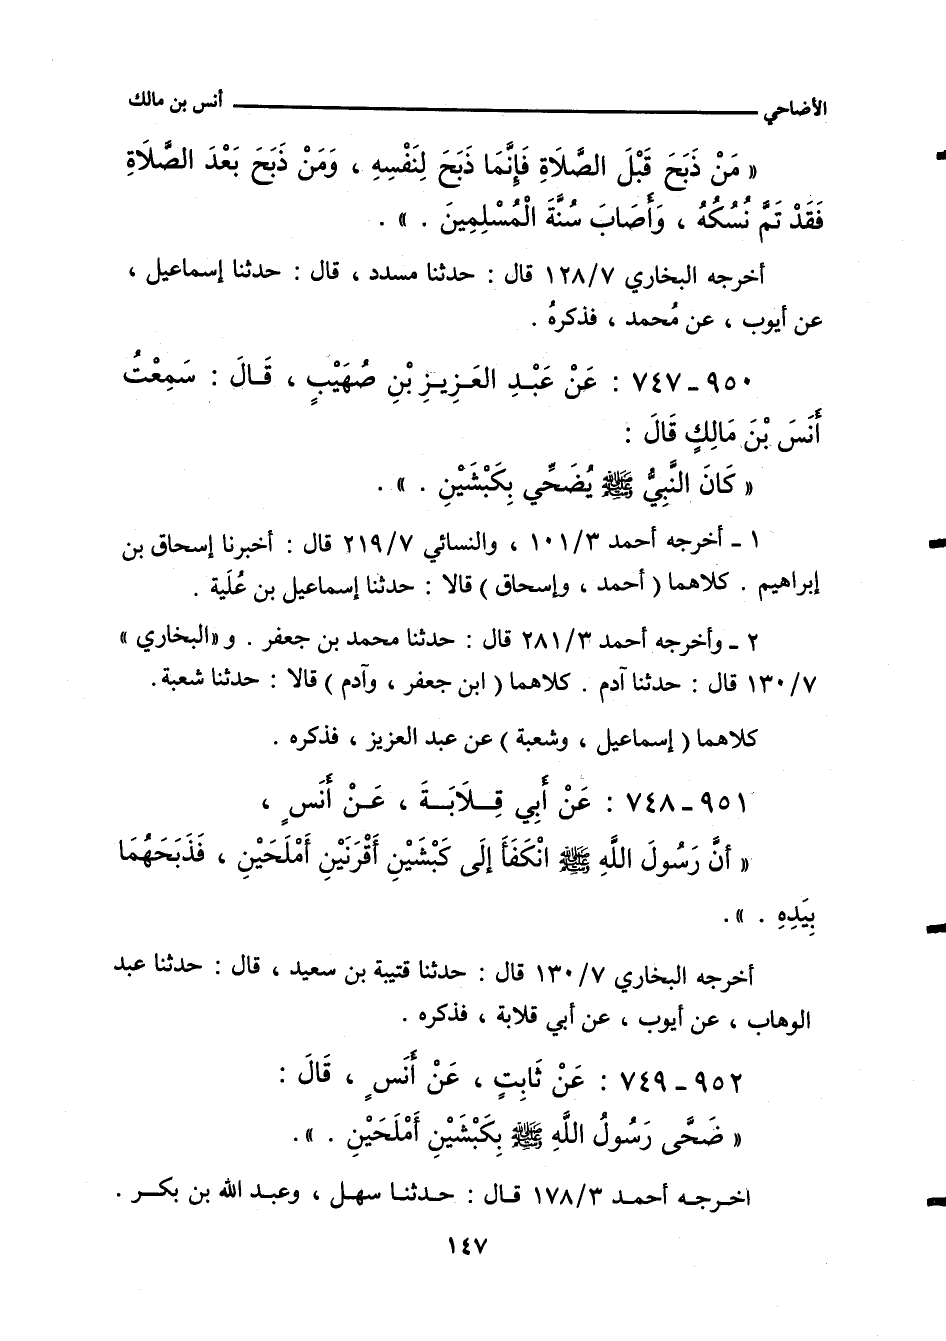 الأضاحي ــــــــــ أنس بن مالك
« مَنْ ذَبَحَ قَبْلَ الصَّلَاةِ فَإِنَّمَا ذَبَحَ لِنَفْسِهِ ، وَمَنْ ذَبَحَ بَعْدَ الصَّلَاةِ
فَقَدْ تَمَّ نُسُكُهُ ، وَأَصَابَ سُنَّةَ الْمُسْلِمِينَ . » .
أخرجه البخاري ١٢٨/٧ قال : حدثنا مسدد ، قال : حدثنا إسماعيل ،
عن أيوب ، عن مُحمد ، فذكرهُ .
٩٥٠ ـ ٧٤٧ : عَنْ عَبْدِ العَزِيزِ بْنِ صُهَيْبٍ ، قَالَ : سَمِعْتُ
أَنَسَ بْنَ مَالِكٍ قَالَ :
« كَانَ النَّبِيُّ ﷺ يُضَحِّي بِكَبْشَيْنِ . » .
١ ـ أخرجه أحمد ١٠١/٣ ، والنسائي ٢١٩/٧ قال : أخبرنا إسحاق بن
إبراهيم . كلاهما ( أحمد ، وإسحاق ) قالا : حدثنا إسماعيل بن عُلَية .
٢ ـ وأخرجه أحمد ٢٨١/٣ قال : حدثنا محمد بن جعفر . و «البخاري »
١٣٠/٧ قال : حدثنا آدم . كلاهما ( ابن جعفر ، وآدم ) قالا : حدثنا شعبة .
كلاهما ( إسماعيل ، وشعبة ) عن عبد العزيز ، فذكره .
٩٥١ ـ ٧٤٨ : عَنْ أَبِي قِلَابَةَ ، عَنْ أَنَسٍ ،
« أَنَّ رَسُولَ اللَّهِ ﷺ انْكَفَأَ إِلَى كَبْشَيْنِ أَقْرَنَيْنِ أَمْلَحَيْنِ ، فَذَبَحَهُمَا
بِيَدِهِ . » .
أخرجه البخاري ١٣٠/٧ قال : حدثنا قتيبة بن سعيد ، قال : حدثنا عبد
الوهاب ، عن أيوب ، عن أبي قلابة ، فذكره .
٩٥٢ ـ ٧٤٩ : عَنْ ثَابِتٍ ، عَنْ أَنَسٍ ، قَالَ :
« ضَحَّى رَسُولُ اللَّهِ ﷺ بِكَبْشَيْنِ أَمْلَحَيْنِ . » .
اخرجه أحمد ١٧٨/٣ قال : حدثنا سهل ، وعبد الله بن بكر .
١٤٧